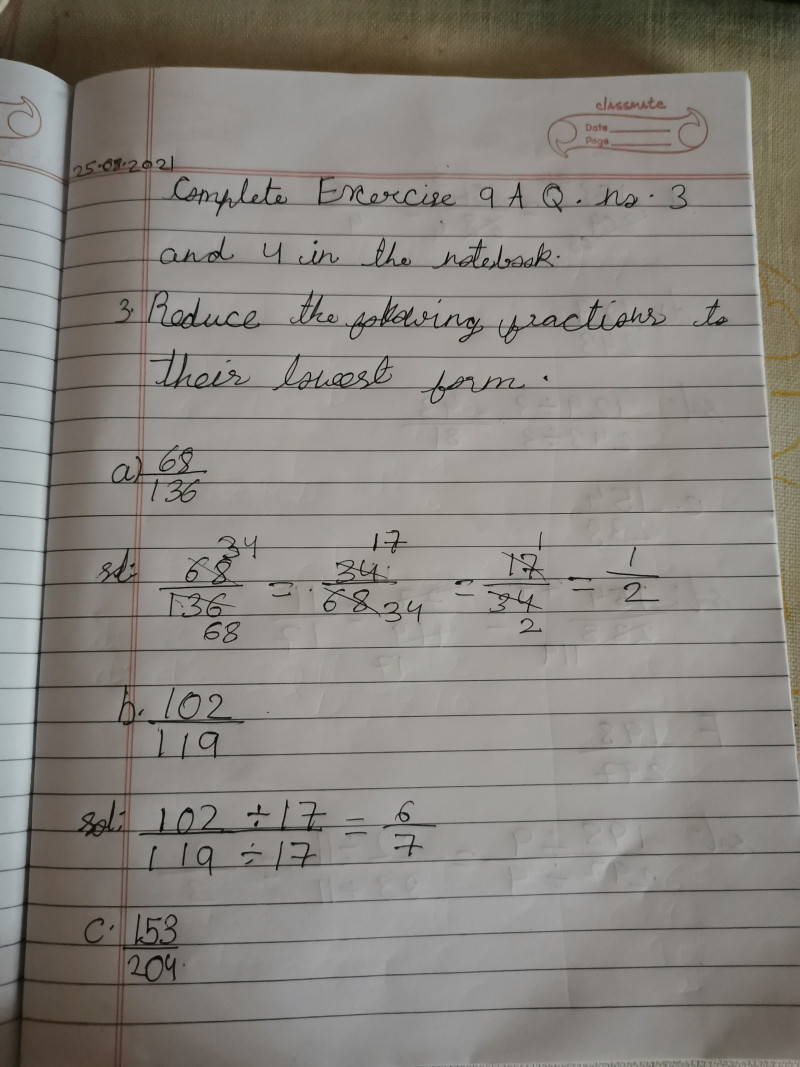 classmate
Date
Page
25.08.2021
Complete Exercise 9 A Q. no. 3
and 4 in the notebook.
3. Reduce the following fractions to
their lowest form.
a) 68
136
34 17 1
sol: 68 = 34 = 17 = 1
136 68 34 34 2
68 2
b. 102
119
sol: 102 ÷ 17 = 6
119 ÷ 17 7
c. 153
204